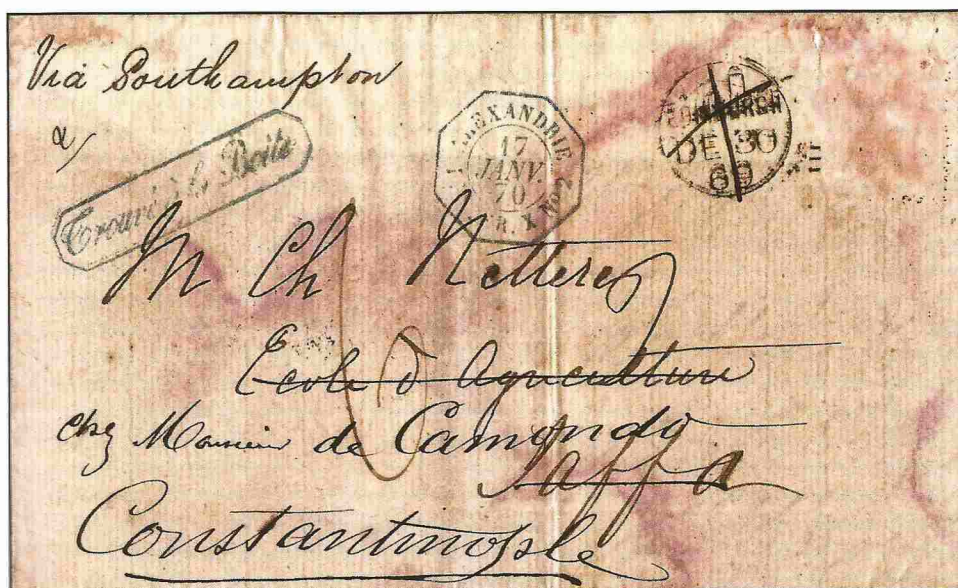 Via Southampton
Trouvé à la Boite
ALEXANDRIE
17
JANV.
70
R. X No 2
EDINBURGH
DE 30
69
M Ch Netter
Ecole d Agriculture
chez Monsieur de Camondo
Jaffa
Constantinople